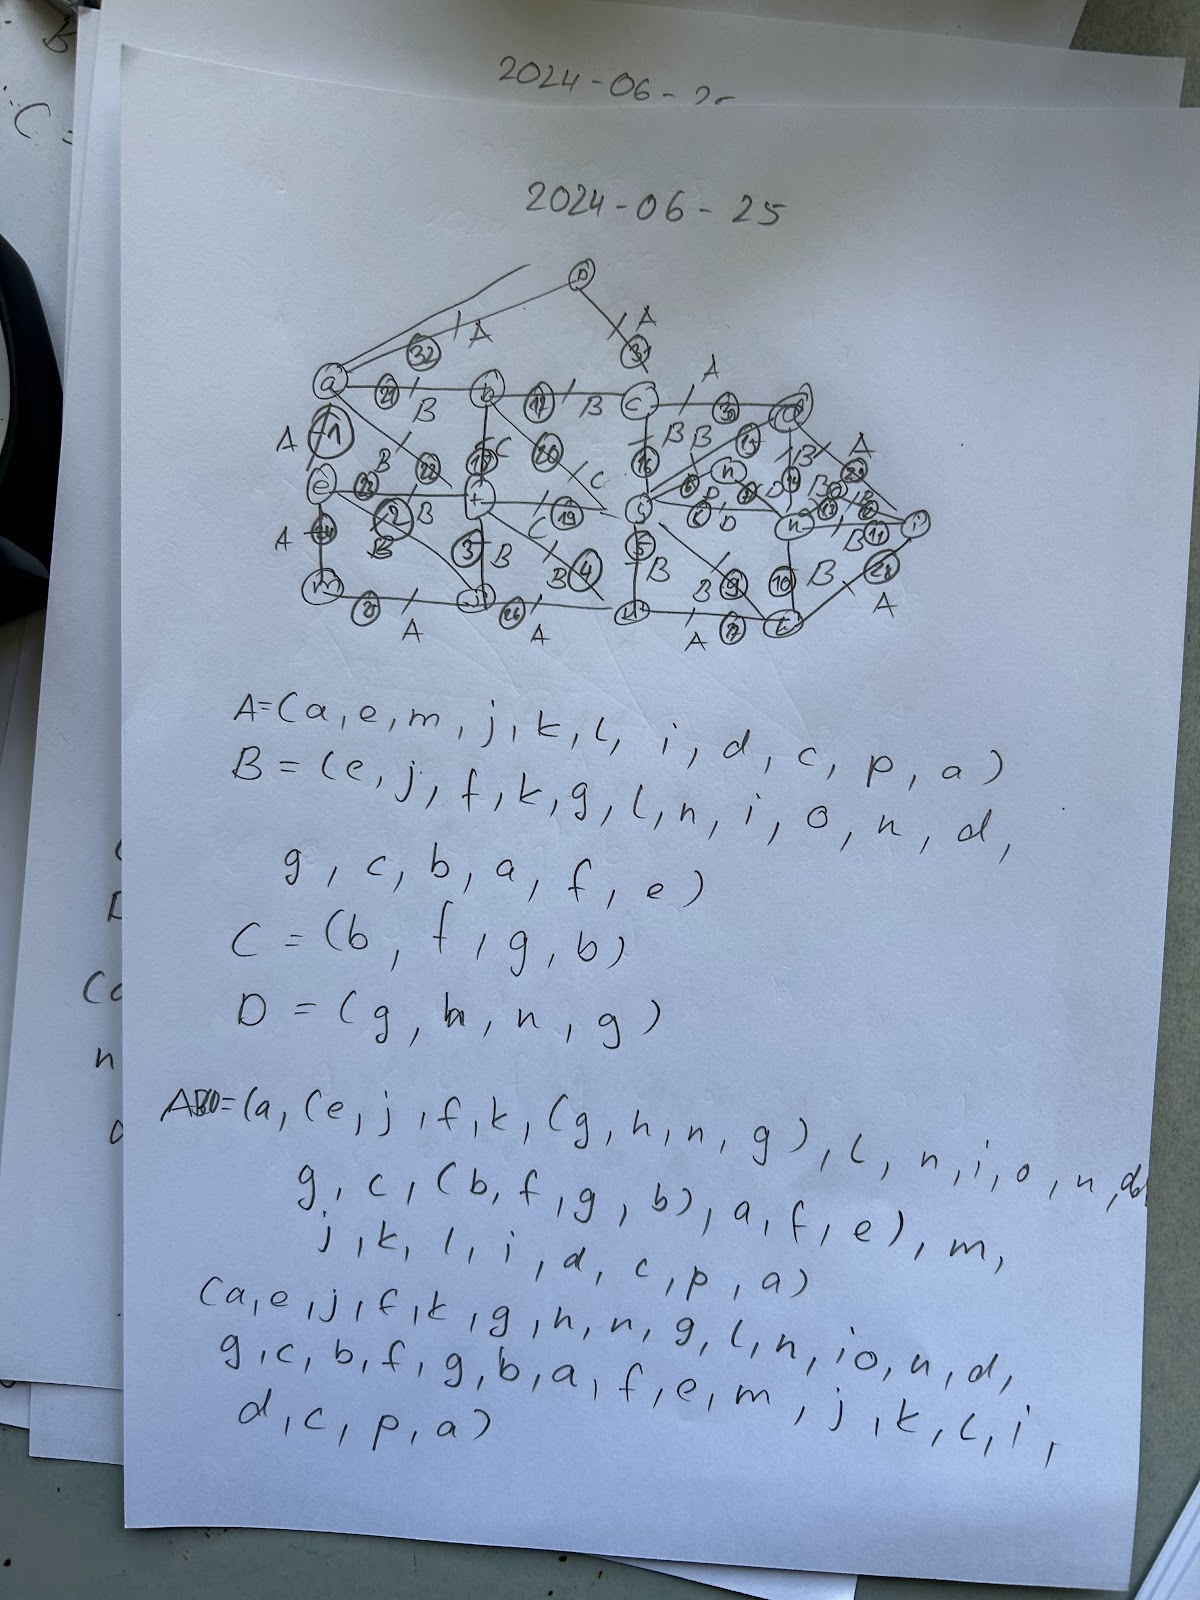 B
C =
2024-06-25
2024-06-25
p
A
A
32
31
A
a
21
B
b
17
B
c
30
d
A
1
B
22
18
C
20
C
B
16
B
15
n
B
14
A
29
e
23
2
B
f
C
19
g
6
D
7
D
8
D
h
B
13
12
B
11
i
A
24
B
3
B
B
4
5
B
B
9
10
B
28
A
m
25
A
j
26
A
k
A
27
l
A=(a, e, m, j, k, l, i, d, c, p, a)
B = (e, j, f, k, g, l, n, i, o, n, d,
g, c, b, a, f, e)
C = (b, f, g, b)
D = (g, h, n, g)
ABCD=(a, (e, j, f, k, (g, h, n, g), l, n, i, o, n, d,
g, c, (b, f, g, b), a, f, e), m,
j, k, l, i, d, c, p, a)
(a, e, j, f, k, g, h, n, g, l, n, i o, n, d,
g, c, b, f, g, b, a, f, e, m, j, k, l, i,
d, c, p, a)
n